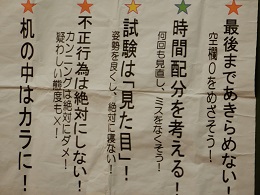 ★最後まであきらめない
空欄0をめざそう!
★時間配分を考える!
何回も見直し、ミスをなくそう!
★試験は「見た目」!
姿勢を良くし、絶対に寝ない!
★不正行為は絶対にしない!
カンニングは絶対にダメ!
疑わしい態度も×!
★机の中はカラに!